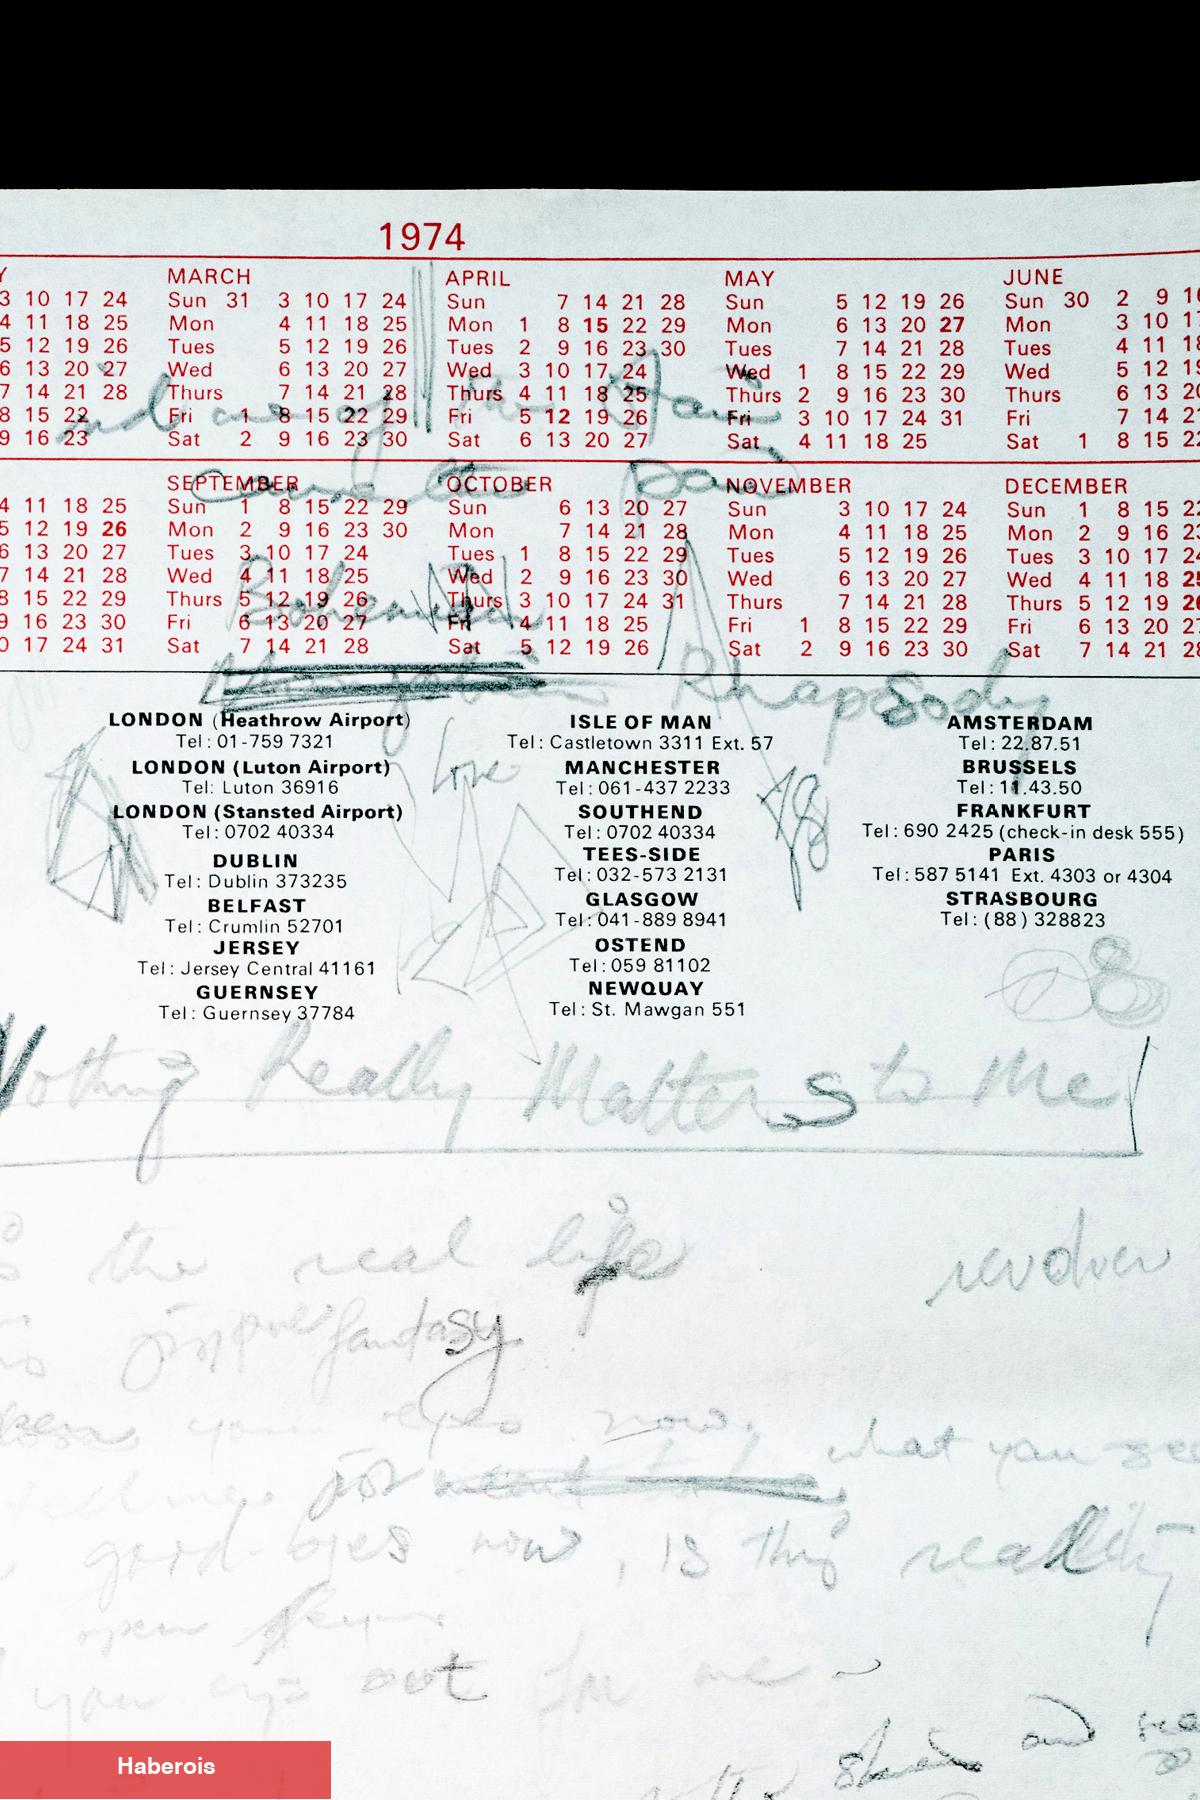 1974
Y MARCH APRIL MAY JUNE
3 10 17 24 Sun 31 3 10 17 24 Sun 7 14 21 28 Sun 5 12 19 26 Sun 30 2 9 16
4 11 18 25 Mon 4 11 18 25 Mon 1 8 15 22 29 Mon 6 13 20 27 Mon 3 10 17
5 12 19 26 Tues 5 12 19 26 Tues 2 9 16 23 30 Tues 7 14 21 28 Tues 4 11 18
6 13 20 27 Wed 6 13 20 27 Wed 3 10 17 24 Wed 1 8 15 22 29 Wed 5 12 19
7 14 21 28 Thurs 7 14 21 28 Thurs 4 11 18 25 Thurs 2 9 16 23 30 Thurs 6 13 20
8 15 22 Fri 1 8 15 22 29 Fri 5 12 19 26 Fri 3 10 17 24 31 Fri 7 14 21
9 16 23 Sat 2 9 16 23 30 Sat 6 13 20 27 Sat 4 11 18 25 Sat 1 8 15 22
SEPTEMBER OCTOBER NOVEMBER DECEMBER
4 11 18 25 Sun 1 8 15 22 29 Sun 6 13 20 27 Sun 3 10 17 24 Sun 1 8 15 22
5 12 19 26 Mon 2 9 16 23 30 Mon 7 14 21 28 Mon 4 11 18 25 Mon 2 9 16 23
6 13 20 27 Tues 3 10 17 24 Tues 1 8 15 22 29 Tues 5 12 19 26 Tues 3 10 17 24
7 14 21 28 Wed 4 11 18 25 Wed 2 9 16 23 30 Wed 6 13 20 27 Wed 4 11 18 25
8 15 22 29 Thurs 5 12 19 26 Thurs 3 10 17 24 31 Thurs 7 14 21 28 Thurs 5 12 19 26
9 16 23 30 Fri 6 13 20 27 Fri 4 11 18 25 Fri 1 8 15 22 29 Fri 6 13 20 27
0 17 24 31 Sat 7 14 21 28 Sat 5 12 19 26 Sat 2 9 16 23 30 Sat 7 14 21 28
Bohemian
Rhapsody
LONDON (Heathrow Airport)
Tel: 01-759 7321
LONDON (Luton Airport)
Tel: Luton 36916
LONDON (Stansted Airport)
Tel: 0702 40334
DUBLIN
Tel: Dublin 373235
BELFAST
Tel: Crumlin 52701
JERSEY
Tel: Jersey Central 41161
GUERNSEY
Tel: Guernsey 37784
ISLE OF MAN
Tel: Castletown 3311 Ext. 57
MANCHESTER
Tel: 061-437 2233
SOUTHEND
Tel: 0702 40334
TEES-SIDE
Tel: 032-573 2131
GLASGOW
Tel: 041-889 8941
OSTEND
Tel: 059 81102
NEWQUAY
Tel: St. Mawgan 551
AMSTERDAM
Tel: 22.87.51
BRUSSELS
Tel: 11.43.50
FRANKFURT
Tel: 690 2425 (check-in desk 555)
PARIS
Tel: 587 5141 Ext. 4303 or 4304
STRASBOURG
Tel: (88) 328823
love
Nothing Really Matters to Me
the real life
revolver
fantasy
your eyes now, what you see
good-byes now, is this reality
open
your eyes out for me
and
Haberois